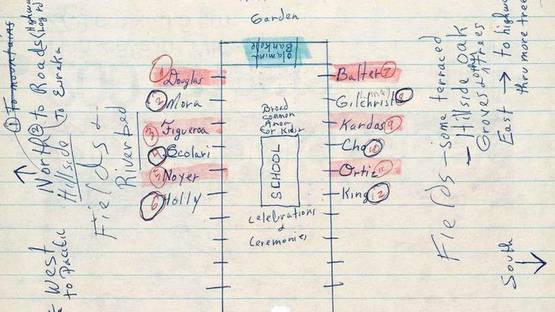 Garden
Olamina
Bankole
1 Douglas
2 Mora
3 Figueroa
4 Scolari
5 Noyer
6 Holly
Balter 7
Gilchrist 8
Kardos 9
Cho 10
Ortiz 11
King 12
Broad
common
Area
for Kids
SCHOOL
Celebrations
+
Ceremonies
① To mountains
North ② to Roads
To Eureka
Hillside
Fields +
Riverbed
West
to Pacific
Fields - some terraced
- Hillside oak
Groves + trees
East → to highway
thru more trees
South